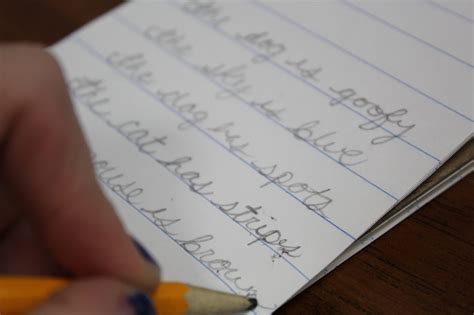 the dog is goofy
the sky is blue
the dog has spots
the cat has stripes
ouse is brown